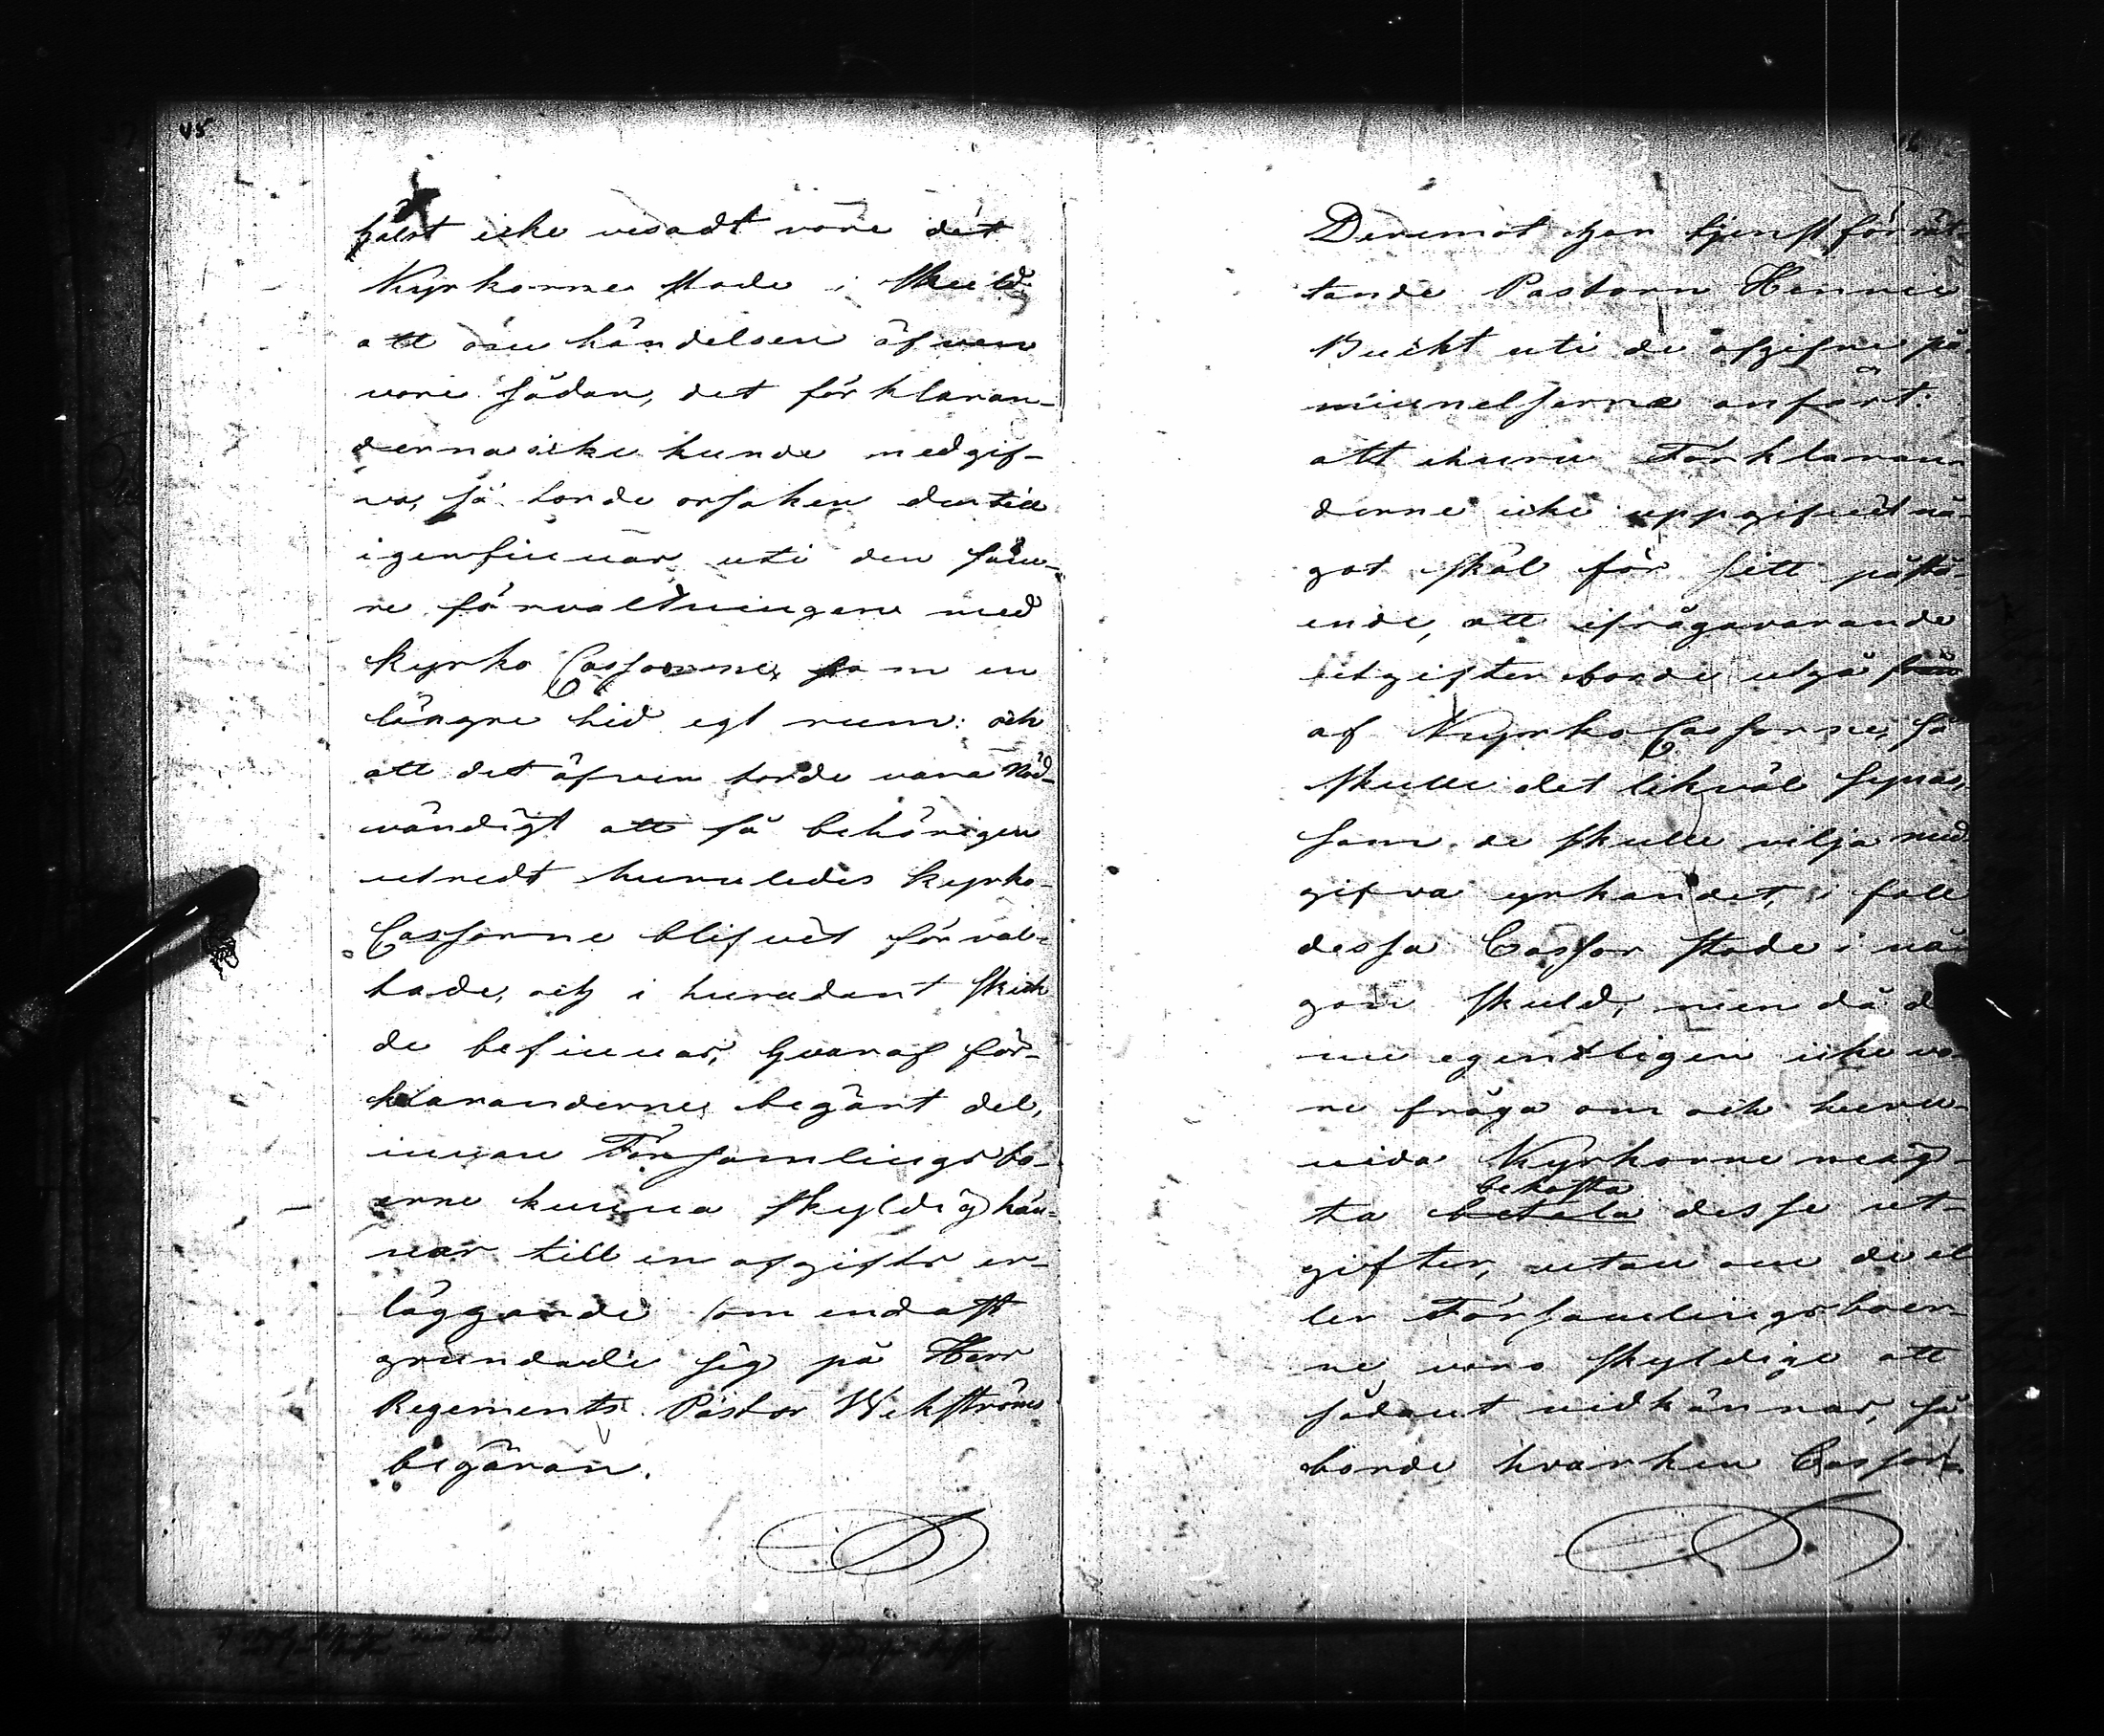 45
hälst icke visadt vore det
Kyrkorne stode i skuld
att om händelsen äfven
vore sådan, det förklaran-
derna icke kunde medgif-
va, så torde orsaken dertill
igenfinnas uti den säm-
re förvaltningen med
kyrko Cassorne, som en
längre tid egt rum: och
att det äfven torde vara nöd-
vändigt att få behörigen
utredt huruledes kyrko-
Cassorne blifvit förval-
tade, och i hurudant skick
de befinnas, hvaraf för-
klaranderne begärt del,
innan Församlingsbo-
erne kunna skyldig kän-
nas till en afgifts er-
läggande som endast
grundade sig på Herr
Regements Pastor Wekströms
begäran.
46
Deremot har tjenstförrät-
tande Pastorn Henric
Bucht uti de afgifne på-
minnelserna anfört:
att ehuru Förklaran-
derne icke uppgifvit nå-
got skäl för sitt påstå-
ende, att ifrågavarande
utgifter borde utgå från
af Kyrko Cassorne, så
skulle det likväl synas,
som de skulle vilja med
gifva yrkandet, i fall
dessa Cassor stode i nå-
gon skuld, men då de
nu egentligen icke vo-
re fråga om och huru-
vida Kyrkorne mäg-
behosta
ta betala desse ut-
gifter, utan om de el
ler Församlingsboer-
ne voro skyldige att
sådant vidkännas, så
borde hvarken Cassor